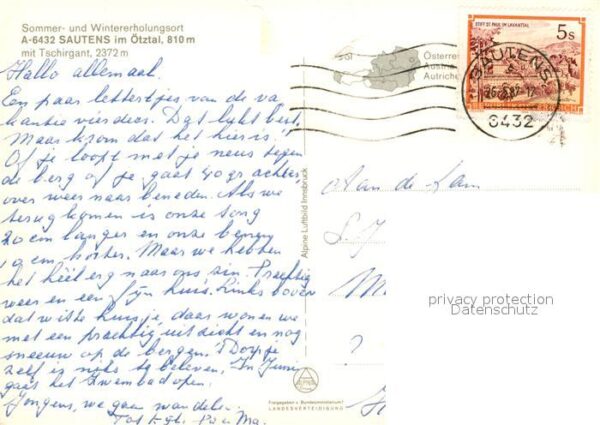 Sommer- und Wintererholungsort
A-6432 SAUTENS im Ötztal, 810 m
mit Tschirgant, 2372 m
Hallo allemaal.
Een paar lettertjes van de va
kantie vierders. Dat lijkt best,
Maar krom dat het hier is.
Of je loopt met je neus tegen
de berg of je gaat 40 gr achter
over weer naar beneden. Als we
terug komen is onze tong
20 cm langer en onze benen
10 cm korter. Maar we hebben
het héél erg naar ons zin. Prachtig
weer en een fijn huis. Links boven
dat witte huisje daar wonen we
met een prachtig uitzicht en nog
sneeuw op de bergen. 't Dorpje
zelf is niks te beleven. In Juni
gaat het zwembad open.
Jongens, we gaan wandelen.
Pa en Ma.
Alpine Luftbild Innsbruck
Freigegeben v. Bundesministerium f.
LANDESVERTEIDIGUNG
Österrei
Austria
Autriche
STIFT ST. PAUL IM LAVANTTAL
5 s
SAUTENS
6432
Aan de
?
privacy protection
Datenschutz